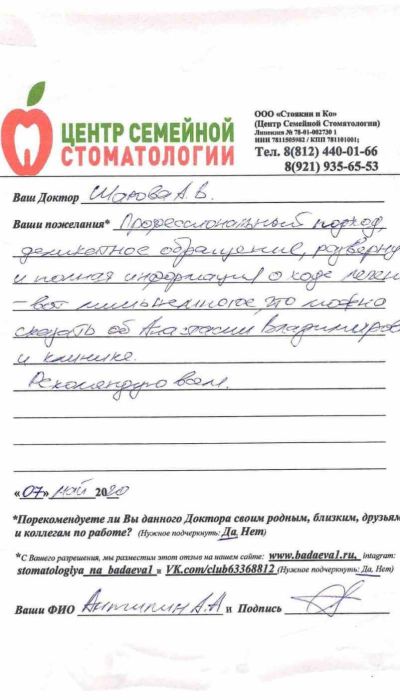 ЦЕНТР СЕМЕЙНОЙ
СТОМАТОЛОГИИ
ООО «Стоякин и Ко»
(Центр Семейной Стоматологии)
Лицензия № 78-01-002730 1
ИНН 7811505982 / КПП 781101001;
Тел. 8(812) 440-01-66
8(921) 935-65-53
Ваш Доктор А.В.
Ваши пожелания* Профессиональный подход,
деликатное обращение, разверну
и полная информация о ходе лечен
- вот лишь немногое, что можно
сказать об Анастасии Владимиров
и клинике.
Рекомендую вам.
«07» май 2020
*Порекомендуете ли Вы данного Доктора своим родным, близким, друзьям
и коллегам по работе? (Нужное подчеркнуть: Да, Нет)
*С Вашего разрешения, мы разместим этот отзыв на нашем сайте: www.badaeva1.ru, intagram:
stomatologiya_na_badaeva1 и VK.com/club63368812 (Нужное подчеркнуть: Да, Нет)
Ваши ФИО Антипин А.А и Подпись